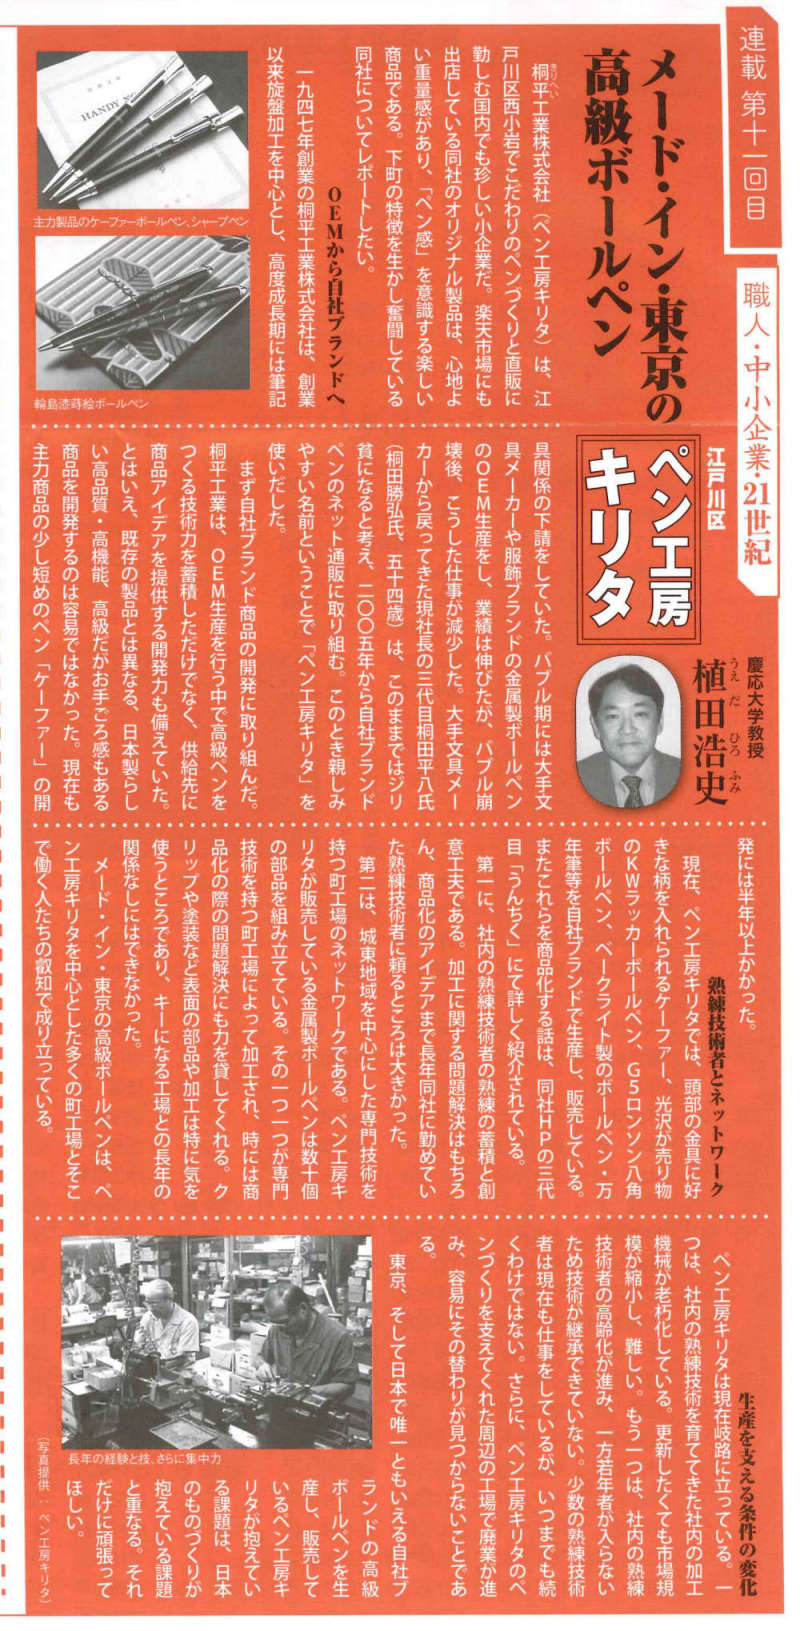 連載 第十一回目
職人・中小企業・21世紀
メード・イン・東京の
高級ボールペン
江戸川区
ペン工房
キリタ
慶応大学教授
植田浩史
うえだ ひろふみ
桐平工業株式会社（ペン工房キリタ）は、江
きりへい
戸川区西小岩でこだわりのペンづくりと直販に
勤しむ国内でも珍しい小企業だ。楽天市場にも
出店している同社のオリジナル製品は、心地よ
い重量感があり、「ペン感」を意識する楽しい
商品である。下町の特徴を生かし奮闘している
同社についてレポートしたい。
OEMから自社ブランドへ
一九四七年創業の桐平工業株式会社は、創業
以来旋盤加工を中心とし、高度成長期には筆記
主力製品のケーファーボールペン、シャープペン
輪島漆蒔絵ボールペン
具関係の下請をしていた。バブル期には大手文
具メーカーや服飾ブランドの金属製ボールペン
のOEM生産をし、業績は伸びたが、バブル崩
壊後、こうした仕事が減少した。大手文具メー
カーから戻ってきた現社長の三代目桐田平八氏
（桐田勝弘氏、五十四歳）は、このままではジリ
貧になると考え、二〇〇五年から自社ブランド
ペンのネット通販に取り組む。このとき親しみ
やすい名前ということで「ペン工房キリタ」を
使いだした。
まず自社ブランド商品の開発に取り組んだ。
桐平工業は、OEM生産を行う中で高級ペンを
つくる技術力を蓄積しただけでなく、供給先に
商品アイデアを提供する開発力も備えていた。
とはいえ、既存の製品とは異なる、日本製らし
い高品質・高機能、高級だがお手ごろ感もある
商品を開発するのは容易ではなかった。現在も
主力商品の少し短めのペン「ケーファー」の開
発には半年以上かかった。
熟練技術者とネットワーク
現在、ペン工房キリタでは、頭部の金具に好
きな柄を入れられるケーファー、光沢が売り物
のKWラッカーボールペン、G5ロンソン八角
ボールペン、ベークライト製のボールペン・万
年筆等を自社ブランドで生産し、販売している。
またこれらを商品化する話は、同社HPの三代
目「うんちく」にて詳しく紹介されている。
第一に、社内の熟練技術者の熟練の蓄積と創
意工夫である。加工に関する問題解決はもちろ
ん、商品化のアイデアまで長年同社に勤めてい
た熟練技術者に頼るところは大きかった。
第二は、城東地域を中心にした専門技術を
持つ町工場のネットワークである。ペン工房キ
リタが販売している金属製ボールペンは数十個
の部品を組み立てている。その一つ一つが専門
技術を持つ町工場によって加工され、時には商
品化の際の問題解決にも力を貸してくれる。ク
リップや塗装など表面の部品や加工は特に気を
使うところであり、キーになる工場との長年の
関係なしにはできなかった。
メード・イン・東京の高級ボールペンは、ペ
ン工房キリタを中心とした多くの町工場とそこ
で働く人たちの叡知で成り立っている。
生産を支える条件の変化
ペン工房キリタは現在岐路に立っている。一
つは、社内の熟練技術を育ててきた社内の加工
機械が老朽化している。更新したくても市場規
模が縮小し、難しい。もう一つは、社内の熟練
技術者の高齢化が進み、一方若年者が入らない
ため技術が継承できていない。少数の熟練技術
者は現在も仕事をしているが、いつまでも続
くわけではない。さらに、ペン工房キリタのペ
ンづくりを支えてくれた周辺の工場で廃業が進
み、容易にその替わりが見つからないことであ
る。
東京、そして日本で唯一ともいえる自社ブ
ランドの高級
ボールペンを生
産し、販売して
いるペン工房キ
リタが抱えてい
る課題は、日本
のものづくりが
抱えている課題
と重なる。それ
だけに頑張って
ほしい。
長年の経験と技、さらに集中力
（写真提供：ペン工房キリタ）